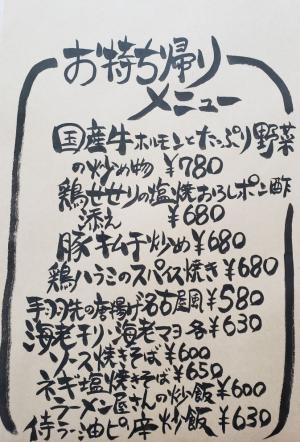 お持ち帰り
メニュー
国産牛ホルモンとたっぷり野菜
の炒め物 ¥780
鶏せせりの塩焼おろしポン酢
添え ¥680
豚キムチ炒め ¥680
鶏ハラミのスパイス焼き ¥680
手羽先の唐揚げ名古屋風 ¥580
海老チリ・海老マヨ 各¥630
ソース焼きそば ¥600
ネギ塩焼きそば ¥650
ラーメン屋さんの炒飯 ¥600
侍ラー油ピリ辛炒飯 ¥630